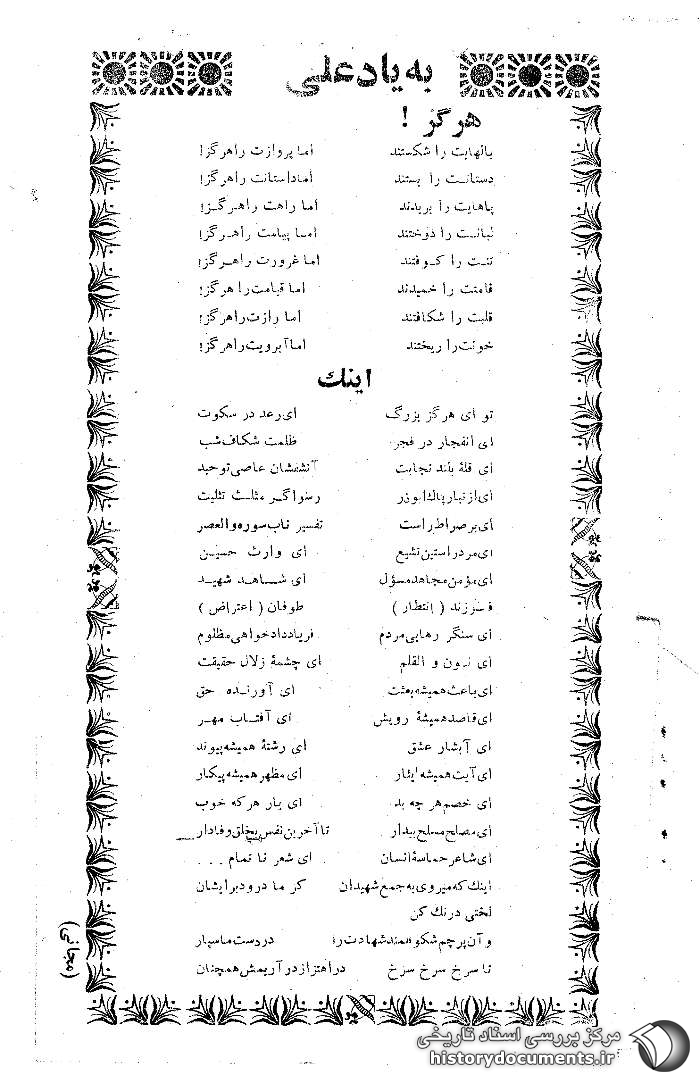 به یاد علی
هرگز !
بالهایت را شکستند اما پروازت را هرگز!
دستانت را بستند اما داستانت را هرگز!
پاهایت را بریدند اما راهت را هرگز!
لبانت را دوختند اما پیامت را هرگز!
تنت را کوفتند اما غرورت را هرگز!
قامتت را خمیدند اما قیامت را هرگز!
قلبت را شکافتند اما رازت را هرگز!
خونت را ریختند اما آبرویت را هرگز!
اینك
تو ای هرگز بزرگ ای رعد در سکوت
ای انفجار در فجر ظلمت شکاف شب
ای قلهٔ بلند نجابت آتشفشان عاصی توحید
ای از تبار پاك ابوذر رسواگر مثلث تثلیت
ای بر صراط راست تفسیر ناب سوره والعصر
ای مرد راستین تشیع ای وارث حسین
ای مؤمن مجاهد مسؤل ای شاهد شهید
فرزند ( انتظار ) طوفان ( اعتراض )
ای سنگر رهایی مردم فریاد دادخواهی مظلوم
ای نون و القلم ای چشمهٔ زلال حقیقت
ای باعث همیشه بعثت ای آورنده حق
ای قاصد همیشهٔ رویش ای آفتاب مهر
ای آبشار عشق ای رشتهٔ همیشه پیوند
ای آیت همیشه ایثار ای مظهر همیشه پیکار
ای خصم هر چه بد ای یار هر که خوب
ای مصلح مسلح بیدار تا آخرین نفس بخلق وفادار
ای شاعر حماسهٔ انسان ای شعر نا تمام . . .
اینك که میروی به جمع شهیدان کز ما درود بر ایشان
لختی درنك کن
و آن پرچم شکوهمند شهادت را در دست ما سپار
تا سرخ سرخ سرخ در اهتزاز در آریمش همچنان
مرکز بررسی اسناد تاریخی
historydocuments.ir